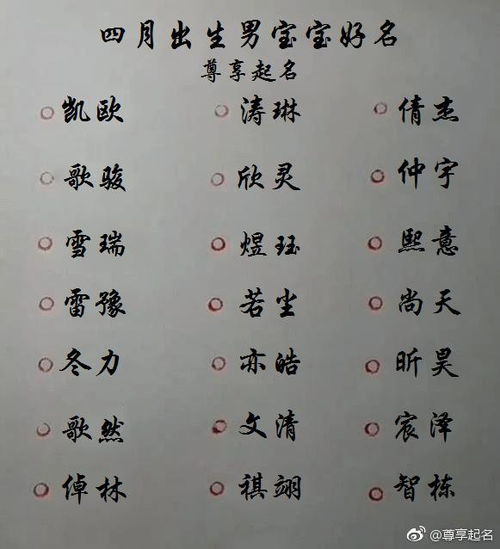 四月出生男宝宝好名
尊享起名
凯欧 涛琳 倩杰
歌骏 欣灵 仲宇
雪瑞 煜珏 熙意
雷豫 若尘 尚天
冬力 亦皓 昕昊
歌然 文清 宸泽
倬林 祺翊 智栋
@尊享起名